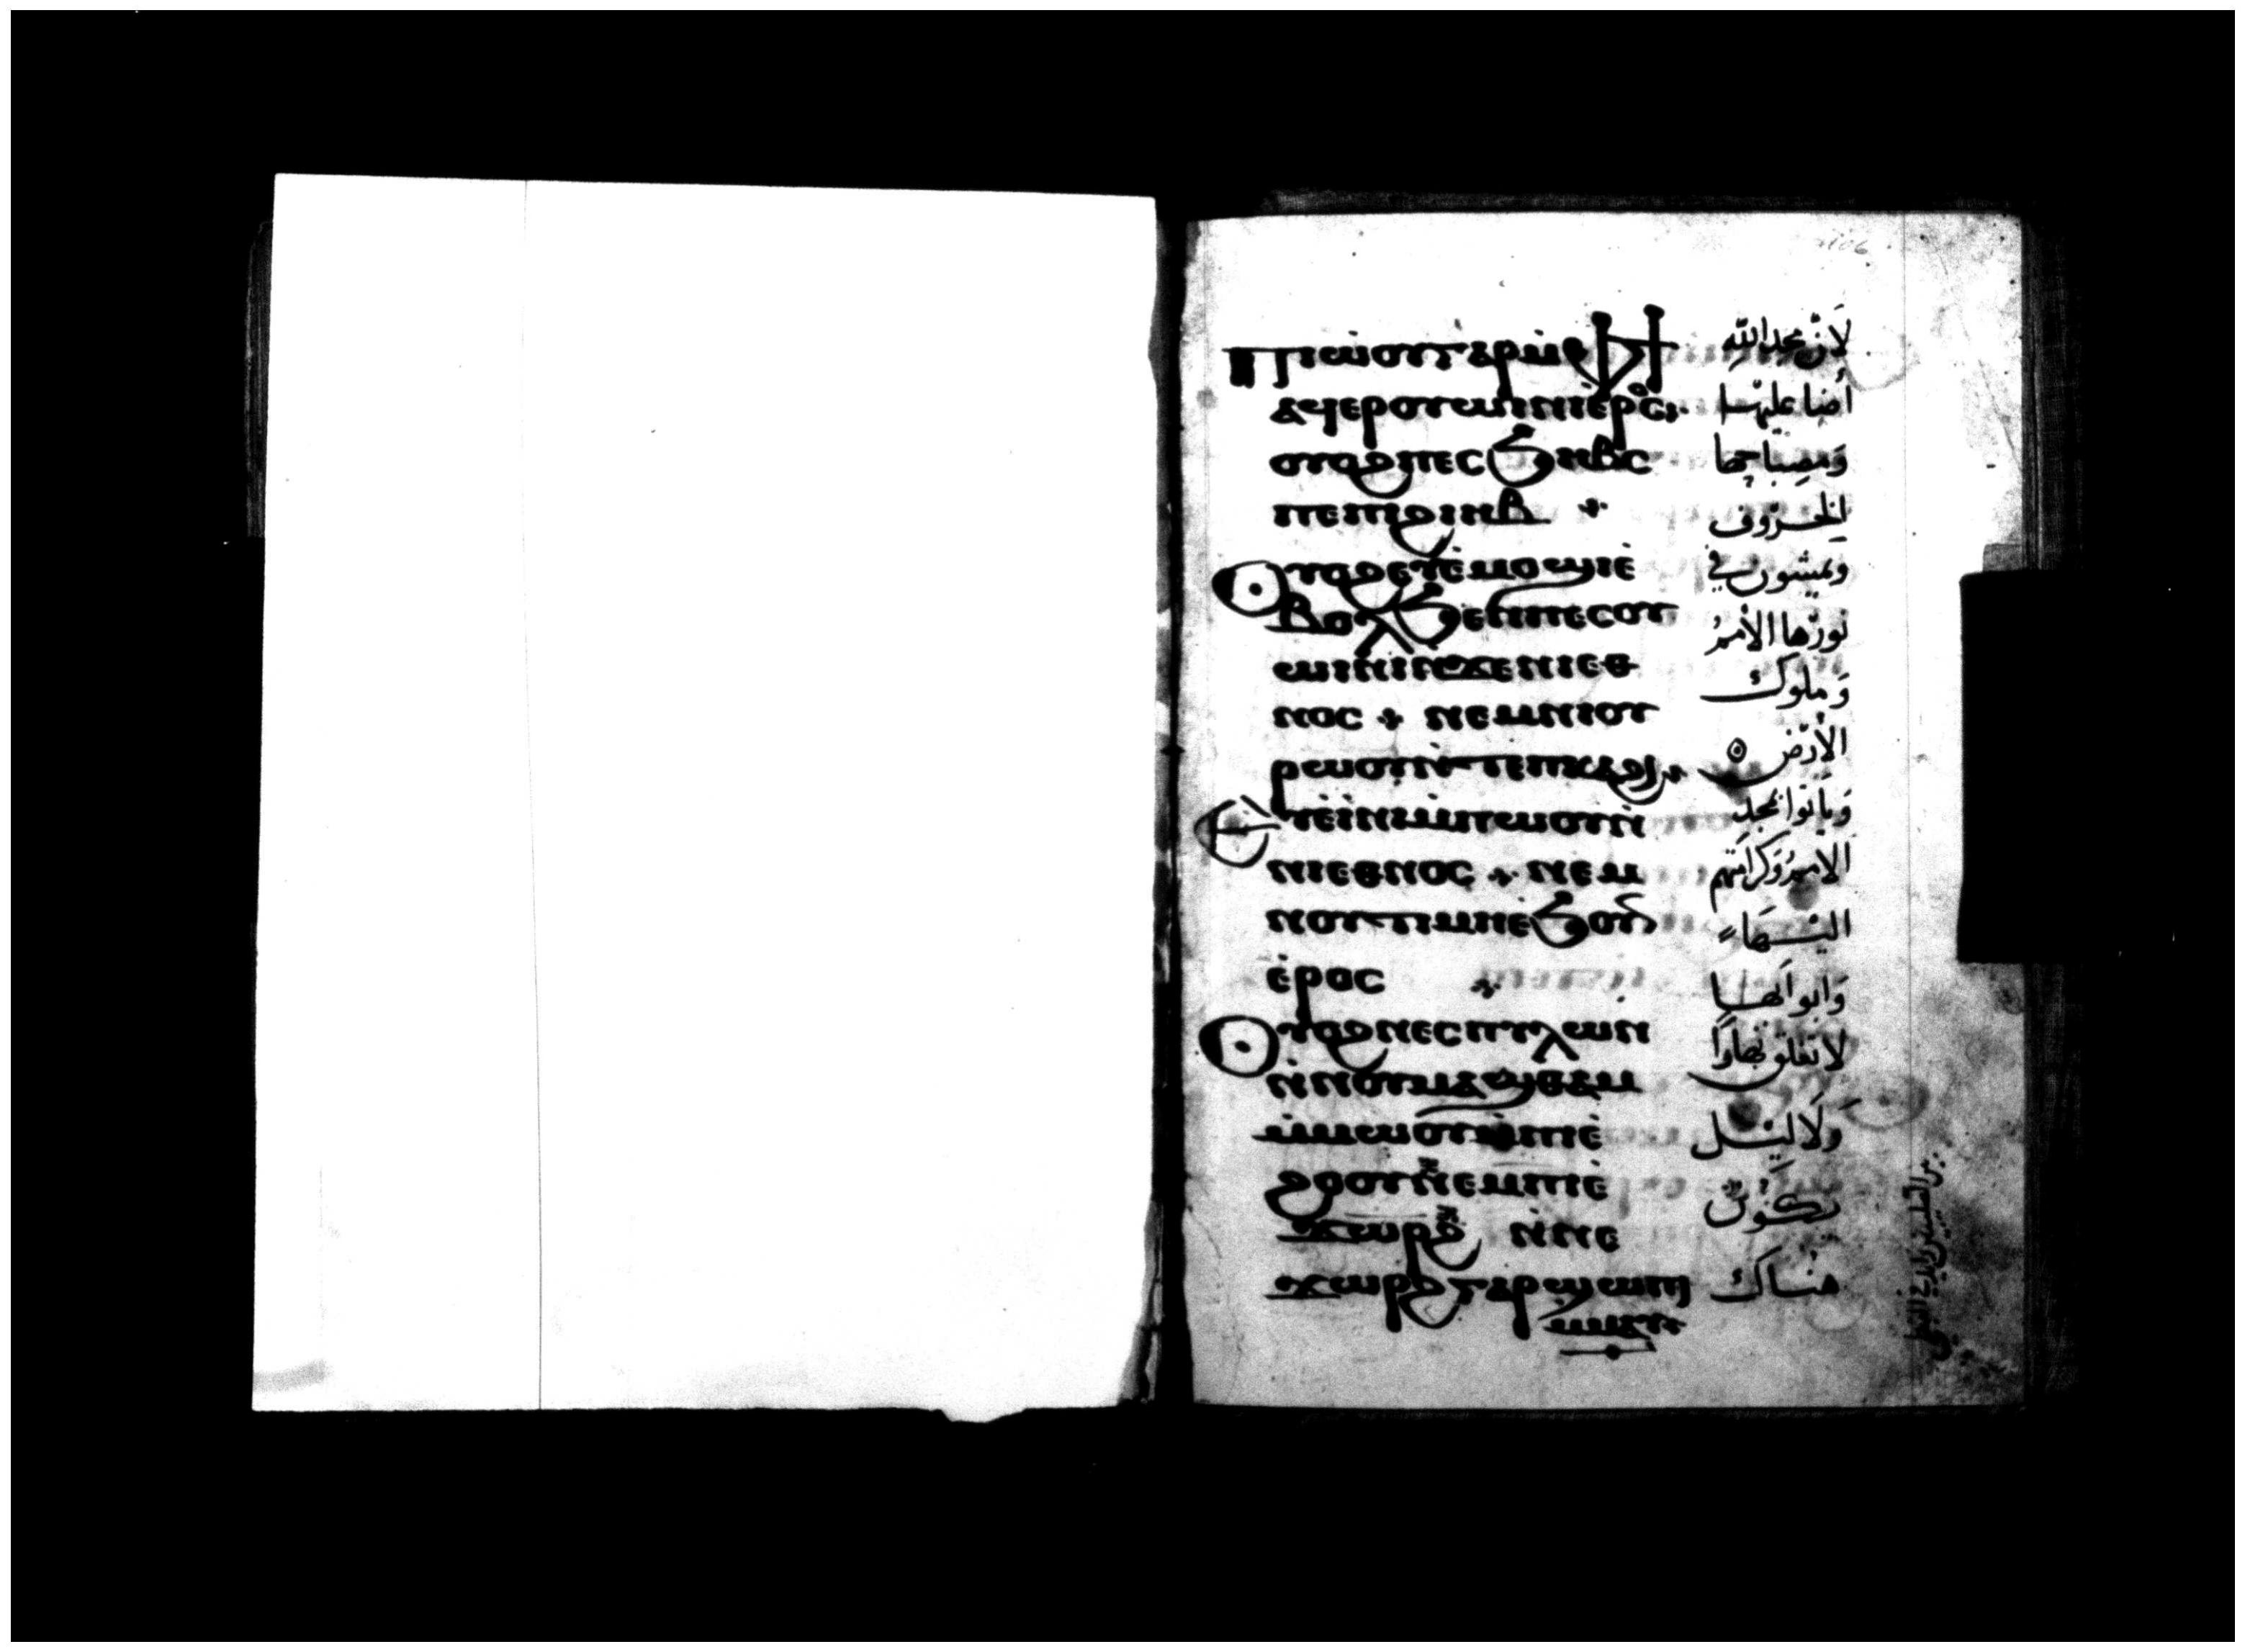 ⲡⲓⲱ̀ⲟⲩⲅⲁⲣⲙ̀ⲫϯ
ⲁϥⲉⲣⲟⲩⲱⲓⲛⲓⲉ̀ⲣⲟⲥ·
ⲟⲩⲟϩⲡⲉⲥϧⲏⲃⲥ
ⲡⲉⲡϩⲓⲏⲃ
ⲟⲩⲟϩⲉⲩⲉ̀ⲙⲟϣⲓⲉ̀
ⲃⲟⲗϧⲉⲛⲡⲉⲥⲟⲩ
ⲱⲓⲛⲓⲛ̀ϫⲉⲛⲓⲉⲑ
ⲛⲟⲥ ⲛⲉⲙⲛⲓⲟⲩ
ⲣⲱⲟⲩⲛ̀ⲧⲉⲡⲕⲁϩⲓ
ⲉⲩⲉ̀ⲓⲛⲓⲙ̀ⲡⲱⲟⲩⲛ̀
ⲛⲓⲉⲑⲛⲟⲥ ⲛⲉⲙ
ⲛⲟⲩⲧⲓⲙⲏⲉ̀ϧⲟⲩⲛ
ⲉ̀ⲣⲟⲥ
ⲟⲩⲟϩⲛⲉⲥⲡⲩⲗⲱⲛ
ⲛ̀ⲛⲟⲩⲙⲁϣⲑⲁⲙ
ⲙ̀ⲙⲱⲟⲩⲙ̀ⲡⲓⲉ̀
ϩⲟⲟⲩⲛ̄ⲉⲙⲡⲓⲉ̀
ϫⲱⲣϩ ⲛ̀ⲛⲉ
ϫⲱⲣϩⲅⲁⲣϣⲱⲡⲓ
ⲙ̀ⲙⲁⲩ
لَانّ مجد الله
أضا عليهـا
وَمصباحها
الخـروف
ويمشون في
نورها الأممُ
وَملوك
الأرض
وَياتوا بمجد
الامم وَكرامتهم
اليـهَا
وَابوابهـا
لا تغلق نهارًا
وَلَا ليـل
يكـون
هنـاك